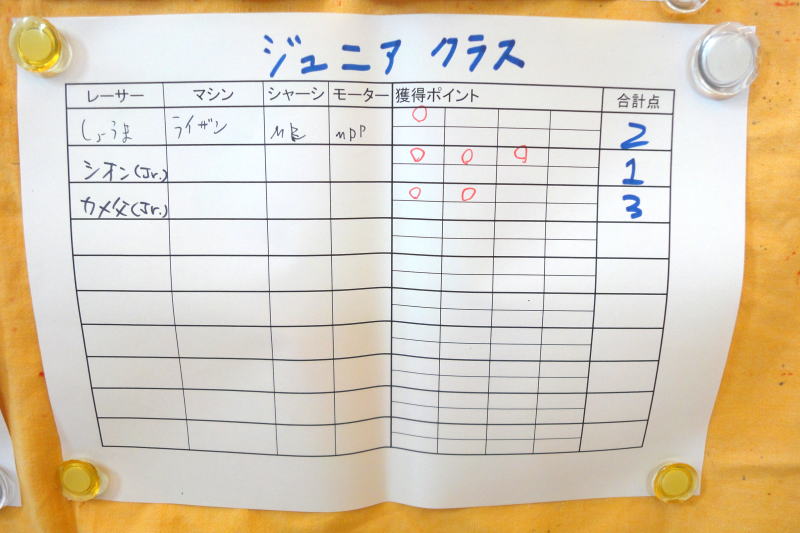 ジュニア クラス
レーサー マシン シャーシ モーター 獲得ポイント 合計点
しょうま ライザン MS MDP 2
シオン(Jr.) 1
カメ父(Jr.) 3